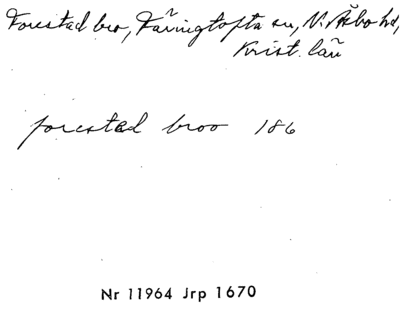 Forestad bro, Färingtofta sn, N. Åsbo hd,
Krist. län
forestad broo 186
Nr 11964 Jrp 1670